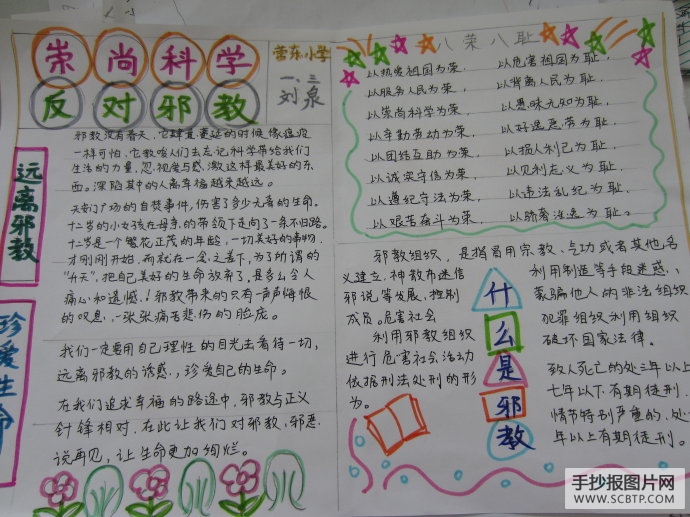 崇尚科学
反对邪教
营东小学
一、三
刘泉
远离邪教
珍爱生命
邪教没有春天,它肆意蔓延的时候像瘟疫
一样可怕,它教唆人们去忘记科学带给我们
生活的力量,忽视爱与感激这样最美好的东
西。深陷其中的人离幸福越来越远。
天安门广场的自焚事件,伤害了多少无辜的生命。
十二岁的小女孩在母亲的带领下走向了一条不归路。
十二岁是一个繁花正茂的年龄,一切美好的事物
才刚刚开始,而就在一念之差下,为了所谓的
“升天”,把自己美好的生命放弃了,是多么令人
痛心和遗憾!邪教带来的只有一声声悔恨
的叹息,一张张痛苦悲伤的脸庞。
我们一定要用自己理性的目光去看待一切,
远离邪教的诱惑,珍爱自己的生命。
在我们追求幸福的路途中,邪教与正义
针锋相对,在此让我们对邪教、邪恶
说再见,让生命更加绚烂。
八荣八耻
以热爱祖国为荣、以危害祖国为耻,
以服务人民为荣、以背离人民为耻,
以崇尚科学为荣、以愚昧无知为耻,
以辛勤劳动为荣、以好逸恶劳为耻,
以团结互助为荣、以损人利己为耻,
以诚实守信为荣、以见利忘义为耻,
以遵纪守法为荣、以违法乱纪为耻,
以艰苦奋斗为荣、以骄奢淫逸为耻。
什么是邪教
邪教组织,是指冒用宗教、气功或者其他名
义建立,神
利用制造等手段迷惑、
邪说等发展、控制
蒙骗他人的非法组织
成员,危害社会
犯罪组织利用组织
利用邪教组织
破坏国家法律。
进行危害社会活动
致人死亡的处三年以上
依据刑法处刑的形
七年以下有期徒刑
为。
情节特别严重的,处
年以上有期徒刑。
手抄报图片网
WWW.SCBTP.COM